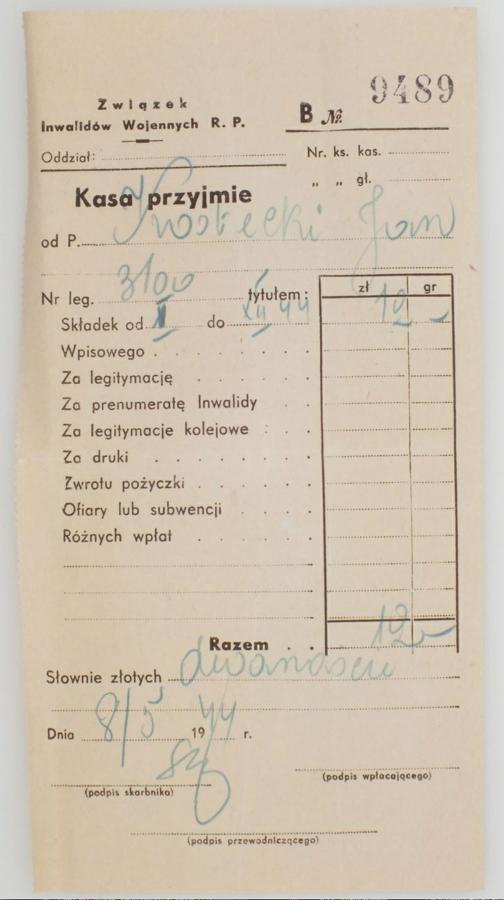 Związek
Inwalidów Wojennych R. P.
9489
B №
Oddział:
Nr. ks. kas.
„ „ gł.
Kasa przyjmie
od P. Kostecki Jan
Nr leg. 3100 tytułem: zł gr
Składek od I do XII 44 12 -
Wpisowego
Za legitymację
Za prenumeratę Inwalidy
Za legitymacje kolejowe
Za druki
Zwrotu pożyczki
Ofiary lub subwencji
Różnych wpłat
Razem 12 -
Słownie złotych dwanaście
Dnia 8/5 1944 r.
(podpis skarbnika)
(podpis wpłacającego)
(podpis przewodniczącego)